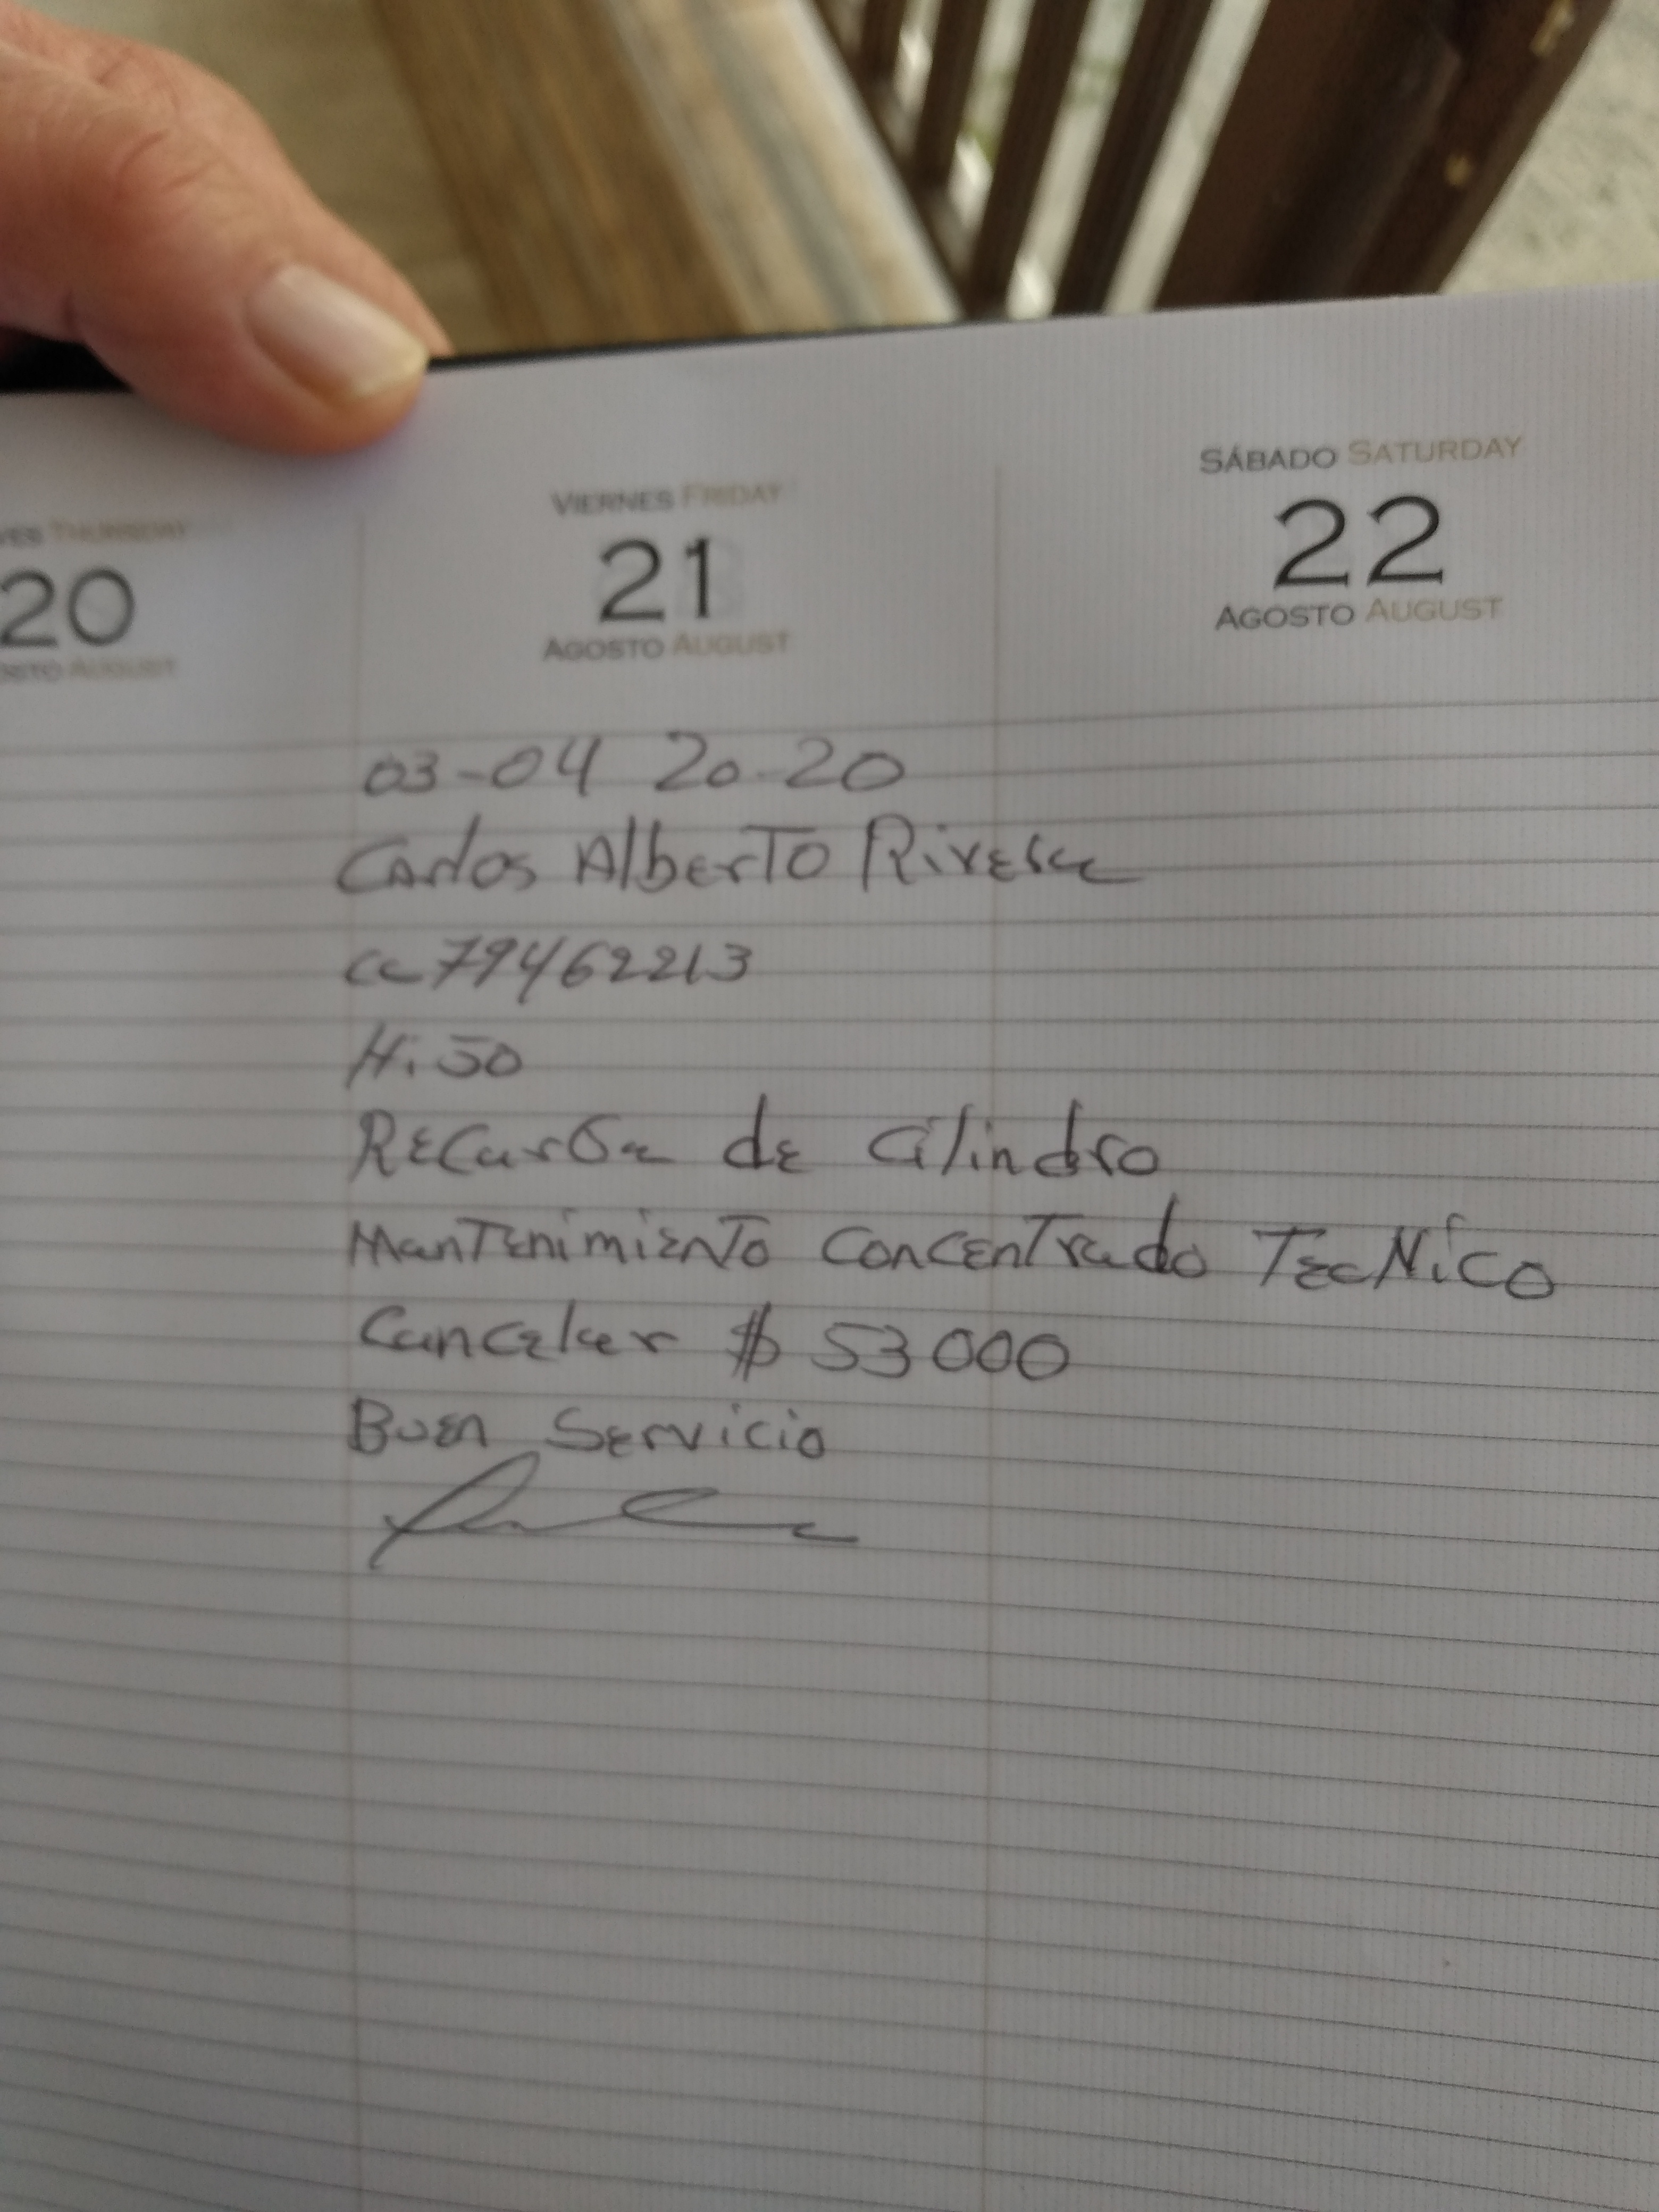 VIERNES FRIDAY
SÁBADO SATURDAY
VES THURSDAY
21
22
20
AGOSTO AUGUST
AGOSTO AUGUST
OSTO AUGUST
03-04 20-20
Carlos Alberto Rivera
cc 79462213
H. 50
Recarga de Cilindro
Mantenimiento Concentrado Tecnico
Cancelar $ 53000
Buen Servicio